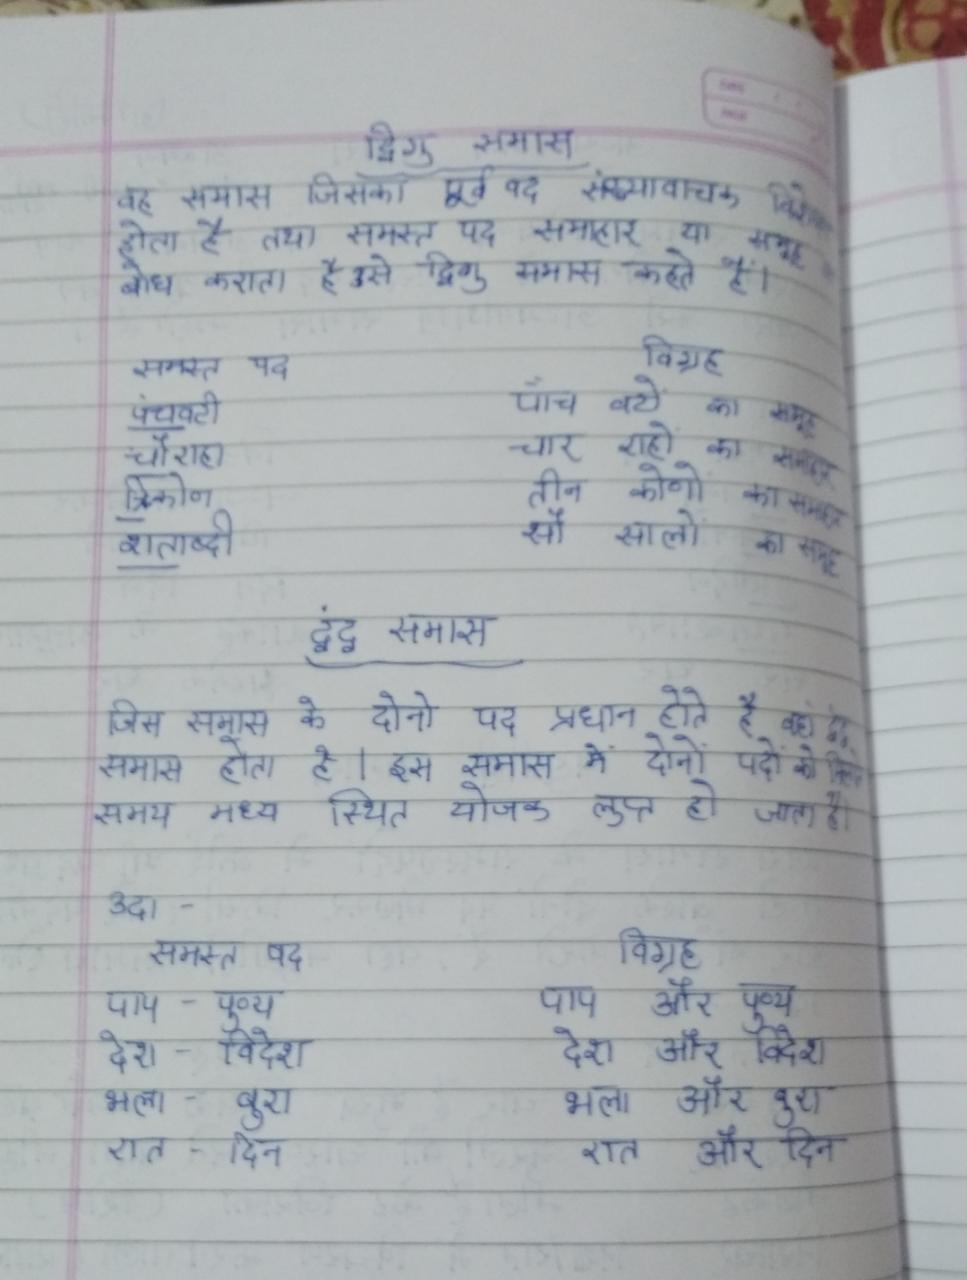 द्विगु समास
वह समास जिसका पूर्व पद संख्यावाचक
होता है तथा समस्त पद समाहार या समूह
बोध कराता है उसे द्विगु समास कहते हैं।
समस्त पद विग्रह
पंचवटी पाँच वटों का समूह
चौराहा चार राहों का समाहार
त्रिकोन तीन कोणो का समाहार
शताब्दी सौ सालों का समूह
द्वंद्व समास
जिस समास के दोनो पद प्रधान होते है वहां द्वंद्व
समास होता है। इस समास में दोनों पदों को
समय मध्य स्थित योजक लुप्त हो जाता है।
उदा -
समस्त पद विग्रह
पाप - पुण्य पाप और पुण्य
देश - विदेश देश और विदेश
भला - बुरा भला और बुरा
रात - दिन रात और दिन